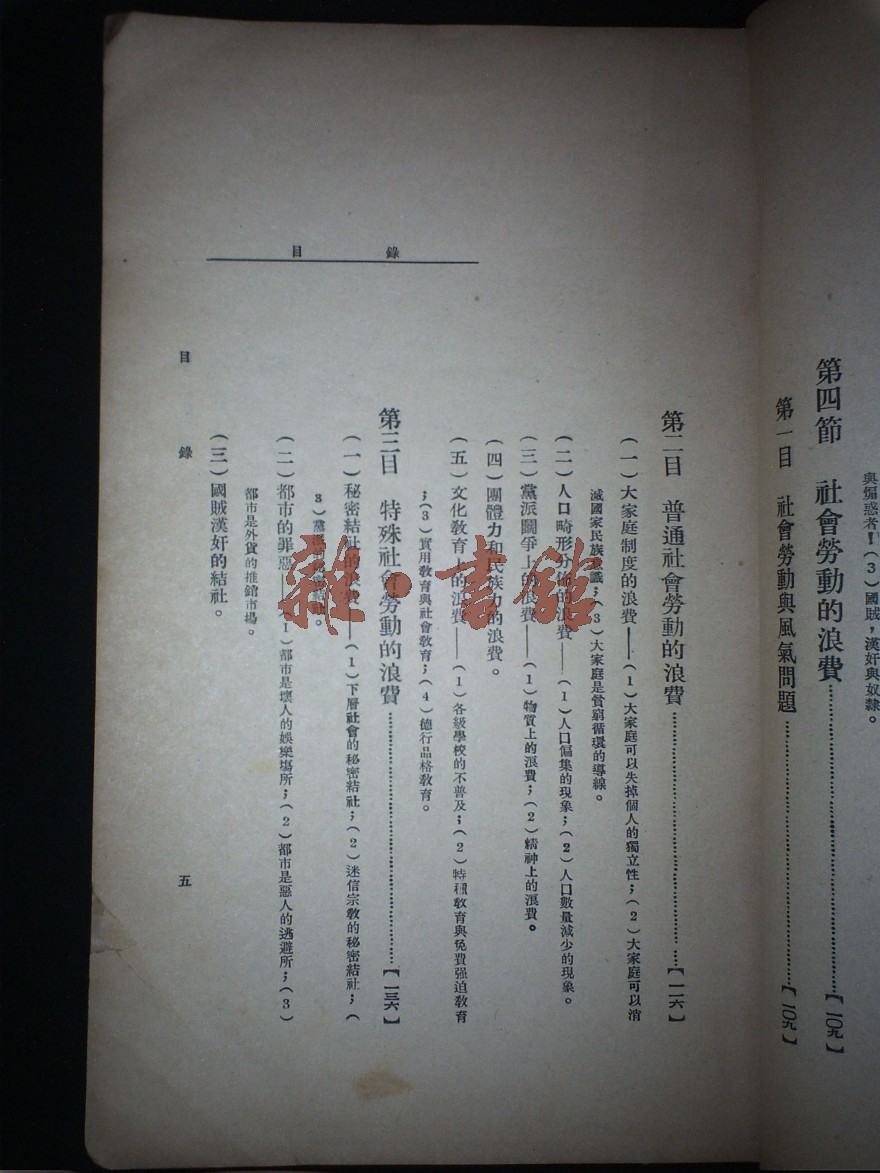 與煽惑者！（3）國賊，漢奸與奴隸。
第四節　社會勞動的浪費……【一〇九】
第一目　社會勞動與風氣問題……【一〇九】
目　錄
第二目　普通社會勞動的浪費……【一一六】
（一）大家庭制度的浪費——（1）大家庭可以失掉個人的獨立性；（2）大家庭可以消
滅國家民族意識；（3）大家庭是貧窮循環的導線。
（二）人口畸形分佈的浪費——（1）人口偏集的現象；（2）人口數量減少的現象。
（三）黨派鬭爭上的浪費——（1）物質上的浪費；（2）精神上的浪費。
（四）團體力和民族力的浪費。
（五）文化敎育上的浪費——（1）各級學校的不普及；（2）特種敎育與免費强迫敎育
；（3）實用敎育與社會敎育；（4）德行品格敎育。
第三目　特殊社會勞動的浪費……【一三六】
（一）秘密結社的浪費——（1）下層社會的秘密結社；（2）迷信宗敎的秘密結社；（
3）黨派的秘密結社。
（二）都市的罪惡——（1）都市是壞人的娛樂塲所；（2）都市是惡人的逃避所；（3）
都市是外貨的推銷市塲。
（三）國賊漢奸的結社。
目　錄　五
雜·書館